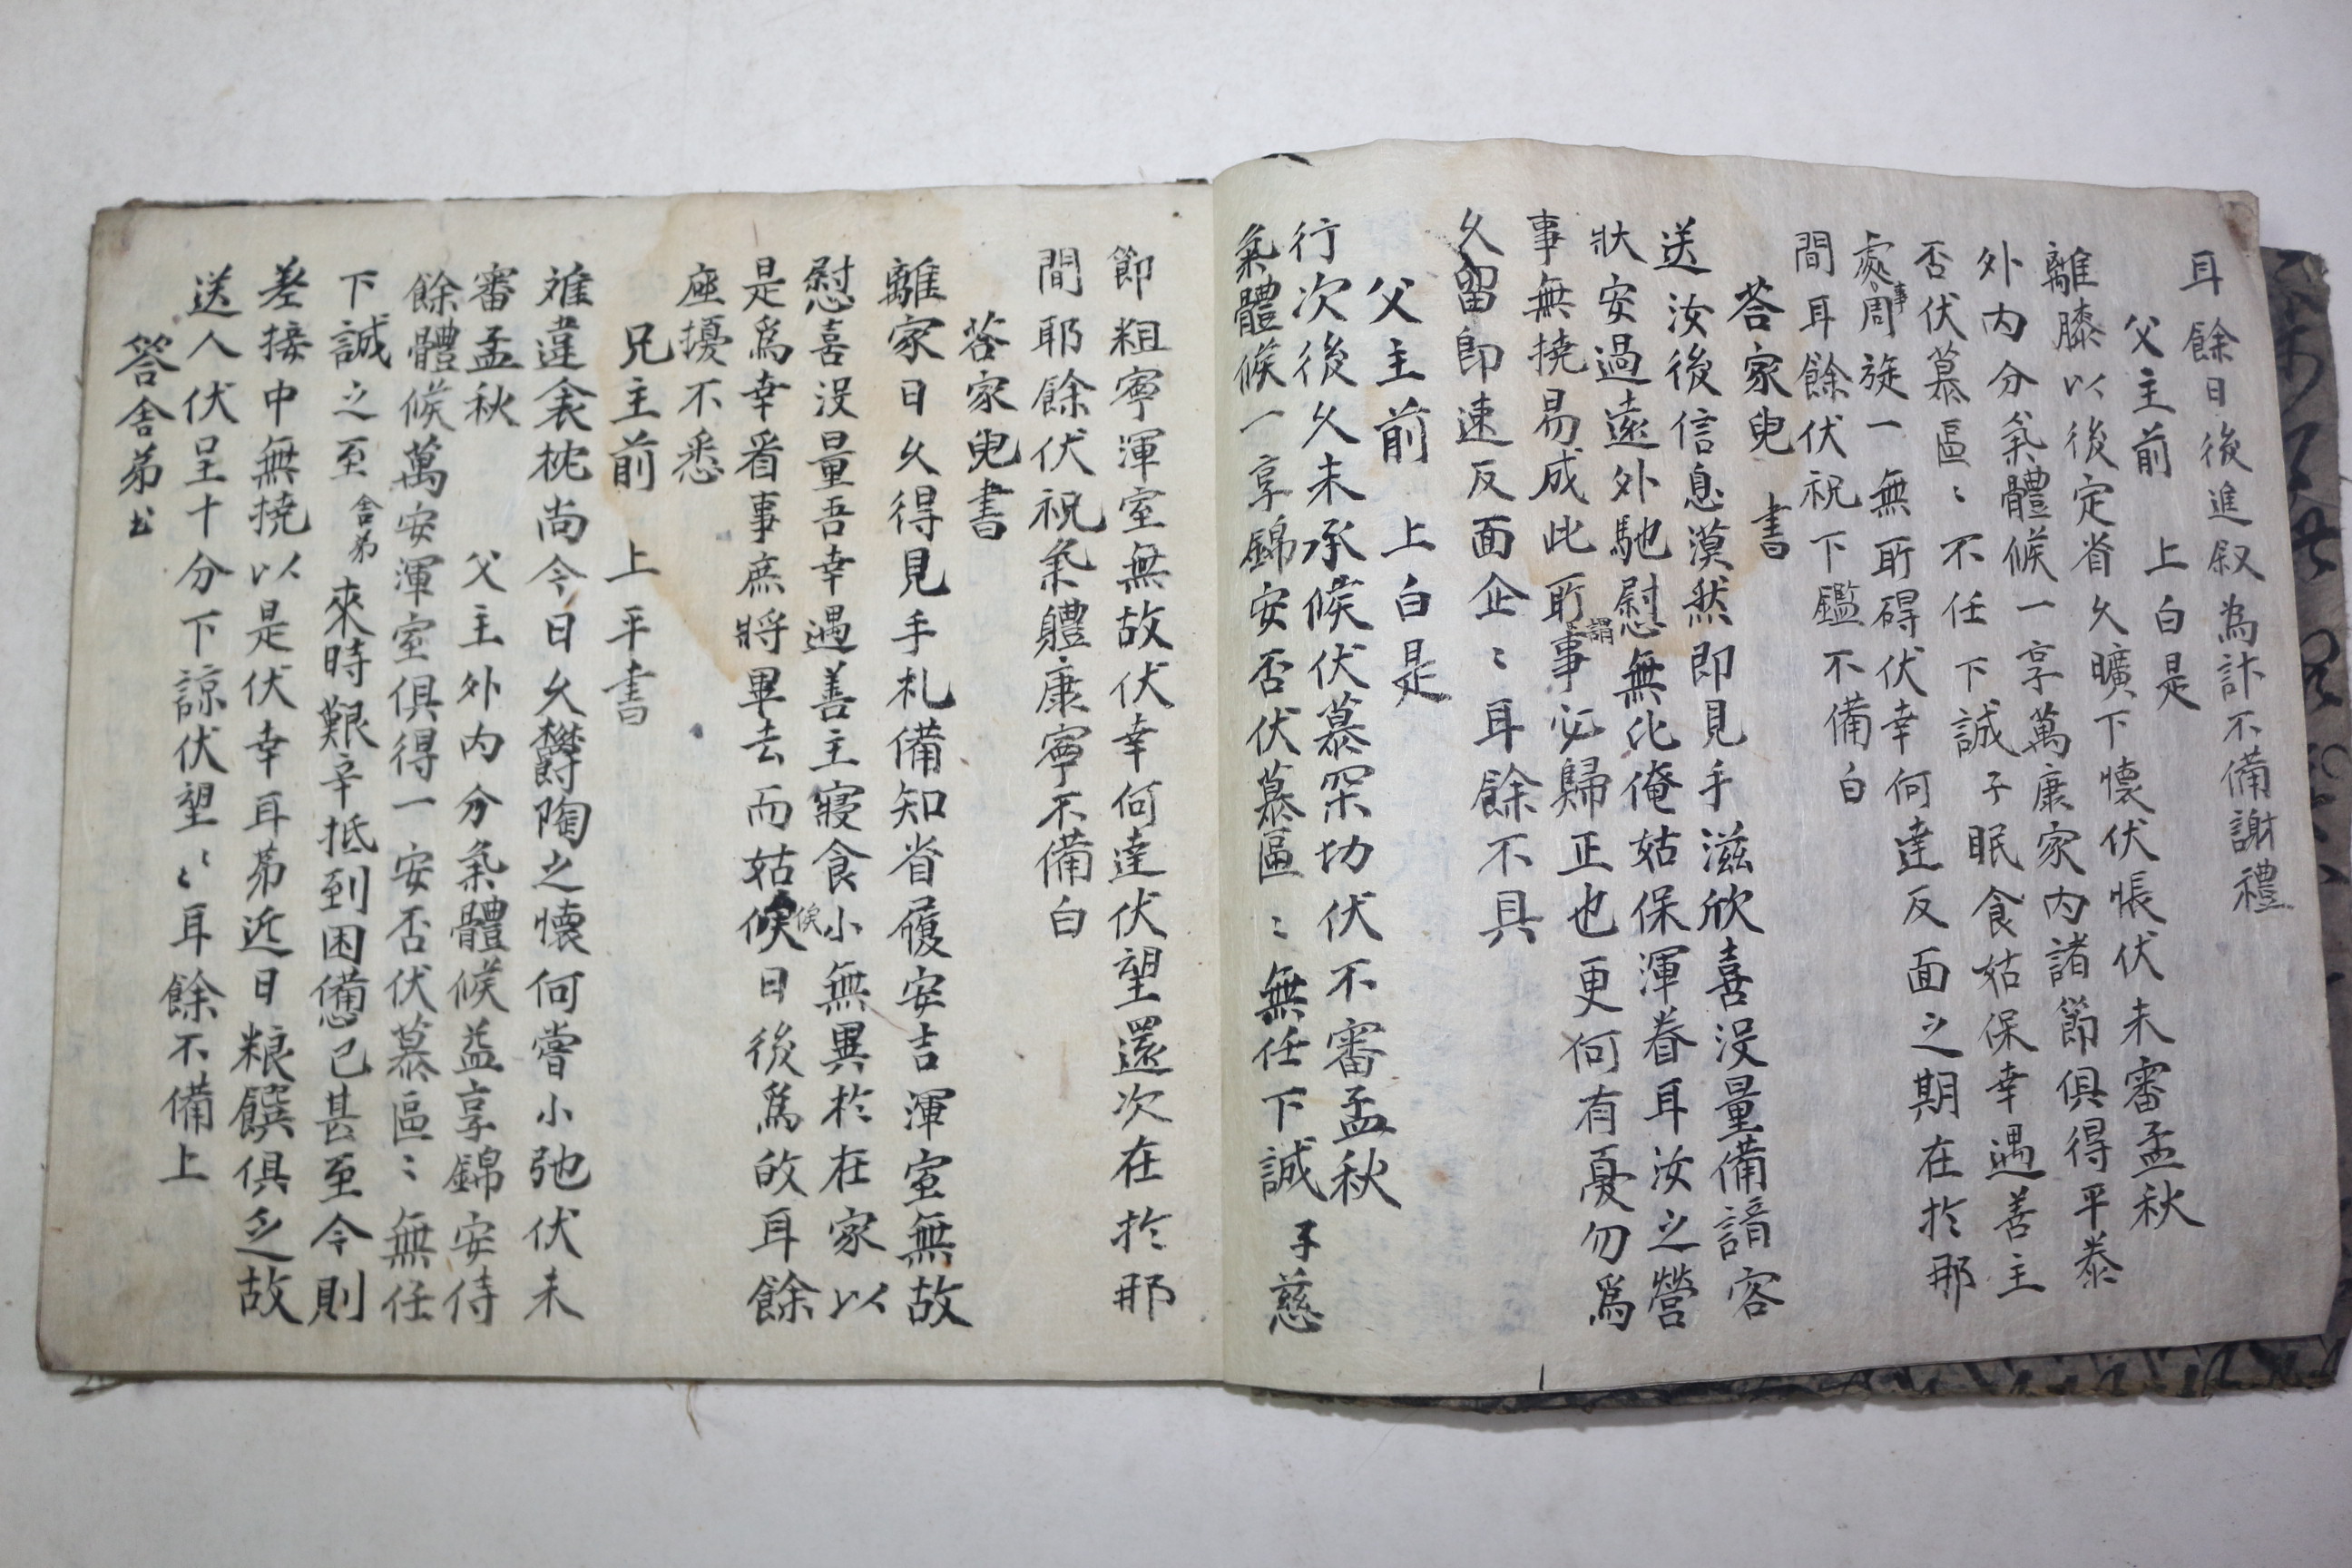 耳餘日後進叙為計不備謝禮
父主前 上白是
離膝以後定省久曠下懷伏悵伏未審孟秋
外內分氣體候一享萬康家內諸節俱得平泰
否伏慕區〻不任下誠子眠食姑保幸遇善主
處事周旋一無所碍伏幸何達反面之期在於那
間耳餘伏祝下鑑不備白
答家兒 書
送汝後信息漠然即見手滋欣喜沒量備諳客
狀安過遠外馳慰無比俺姑保渾眷耳汝之營
事無撓易成此所謂事必歸正也更何有憂勿爲
久留即速反面企〻耳餘不具
父主前 上白是
行次後久未承候伏慕罙切伏不審孟秋
氣體候一享錦安否伏慕區〻無任下誠子慈
節粗寧渾室無故伏幸何達伏望還次在於那
間耶餘伏祝氣體康寧不備白
答家兒書
離家日久得見手札備知省履安吉渾室無故
慰喜沒量吾幸遇善主寢食小無異於在家以
是爲幸看事庶將畢去而姑候候日後爲故耳餘
座擾不悉
兄主前 上平書
雖違衾枕尚今日久欝陶之懷何嘗小弛伏未
審孟秋 父主外內分氣體候益享錦安侍
餘體候萬安渾室俱得一安否伏慕區〻無任
下誠之至舍弟來時艱辛抵到困憊已甚至今則
差接中無撓以是伏幸耳弟近日粮饌俱乏故
送人伏呈十分下諒伏望〻〻耳餘不備上
答舍弟書